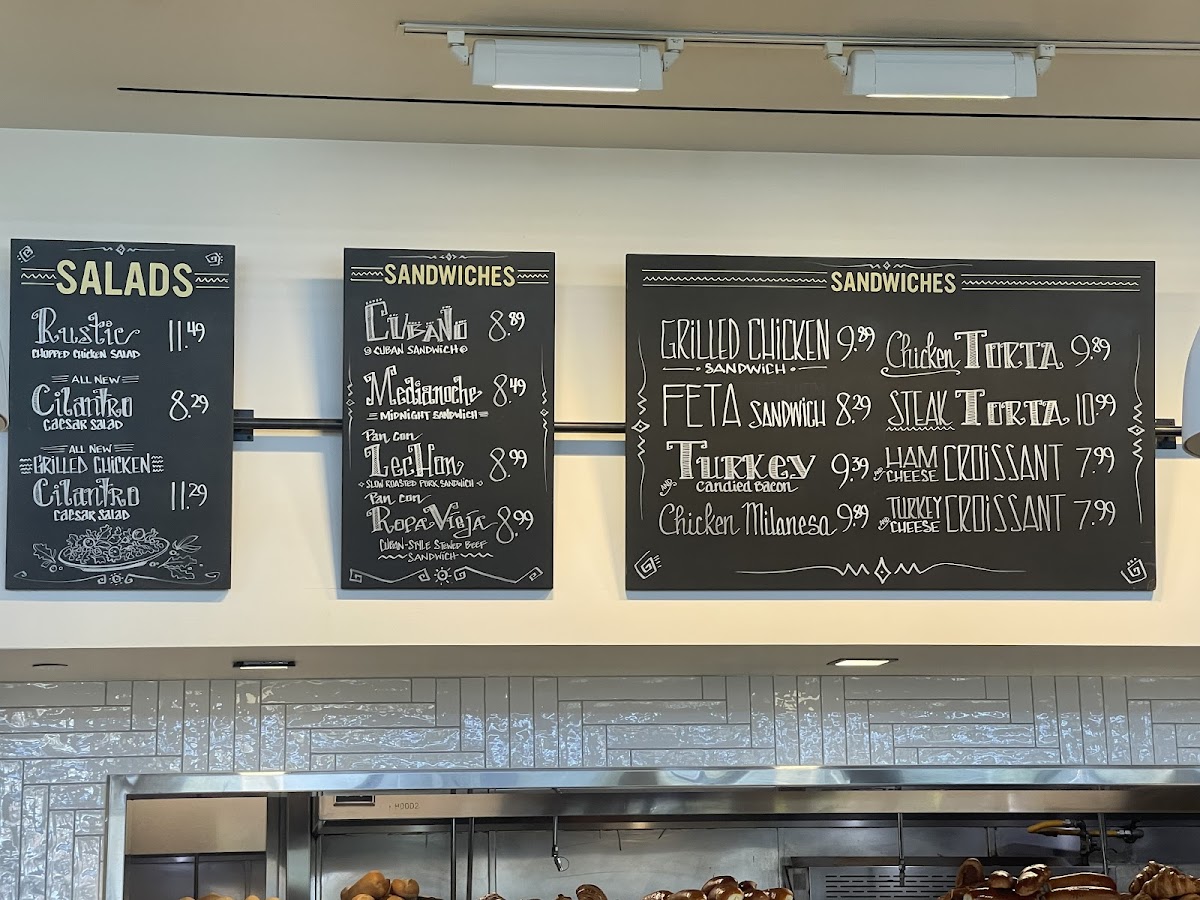 SALADS
Rustic 11.49
CHOPPED CHICKEN SALAD
ALL NEW
Cilantro 8.29
CAESAR SALAD
ALL NEW
GRILLED CHICKEN
Cilantro 11.29
CAESAR SALAD
SANDWICHES
CUBANO 8.89
CUBAN SANDWICH
Medianoche 8.49
MIDNIGHT SANDWICH
Pan con
LecHon 8.99
SLOW ROASTED PORK SANDWICH
Pan con
Ropa Vieja 8.99
CUBAN-STYLE STEWED BEEF
SANDWICH
SANDWICHES
GRILLED CHICKEN 9.89
SANDWICH
FETA SANDWICH 8.29
Turkey 9.39
AND Candied Bacon
Chicken Milanesa 9.89
Chicken TORTA 9.89
STEAK TORTA 10.99
HAM AND CHEESE CROISSANT 7.99
TURKEY AND CHEESE CROISSANT 7.99
H0002